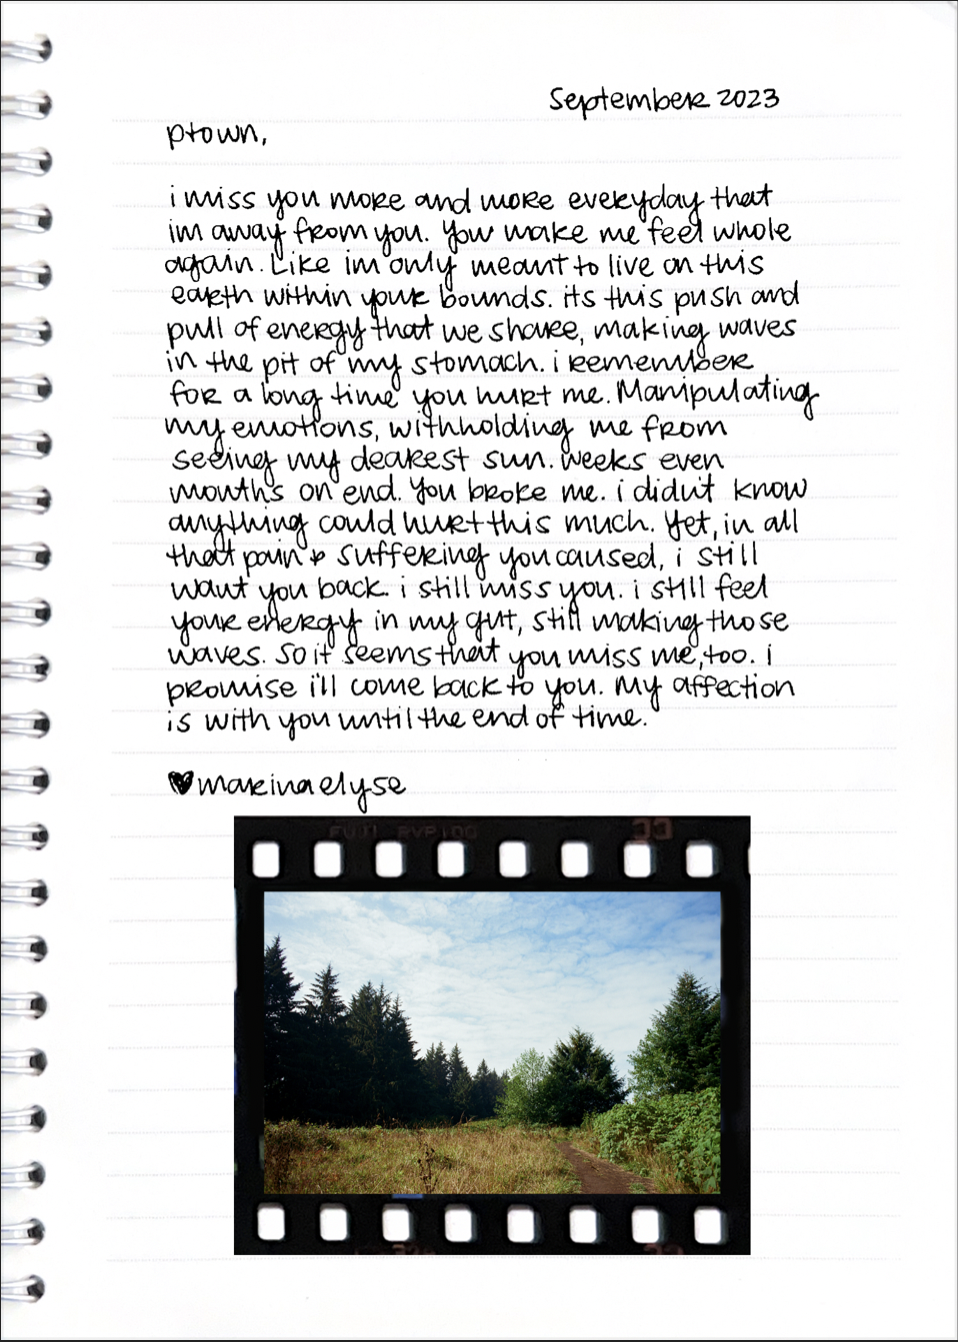 September 2023
ptown,
i miss you more and more everyday that
im away from you. You make me feel whole
again. Like im only meant to live on this
earth within your bounds. its this push and
pull of energy that we share, making waves
in the pit of my stomach. i remember
for a long time you hurt me. Manipulating
my emotions, withholding me from
seeing my dearest sun. weeks even
months on end. You broke me. i didn't know
anything could hurt this much. Yet, in all
that pain & suffering you caused, i still
want you back. i still miss you. i still feel
your energy in my gut, still making those
waves. So it seems that you miss me, too. i
promise i'll come back to you. My affection
is with you until the end of time.
♥marinaelyse
FUJI RVP100 33